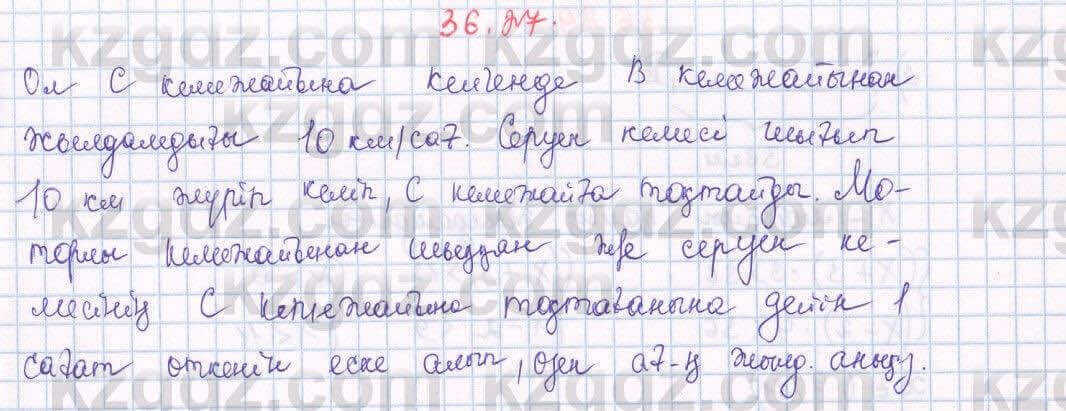 36.27.
Ол С кемежайына келгенде В кемежайынан
жылдамдығы 10 км/сағ. Серуен кемесі шығып
10 км жүріп келіп, С кемежайға тоқтайды. Мо-
торлы кемежайынан шыққан және серуен ке-
месінің С кемежайына тоқтағанына дейін 1
сағат өткенін еске алып, өзен ағ-ң жылд. анықу.
kzgdz.com